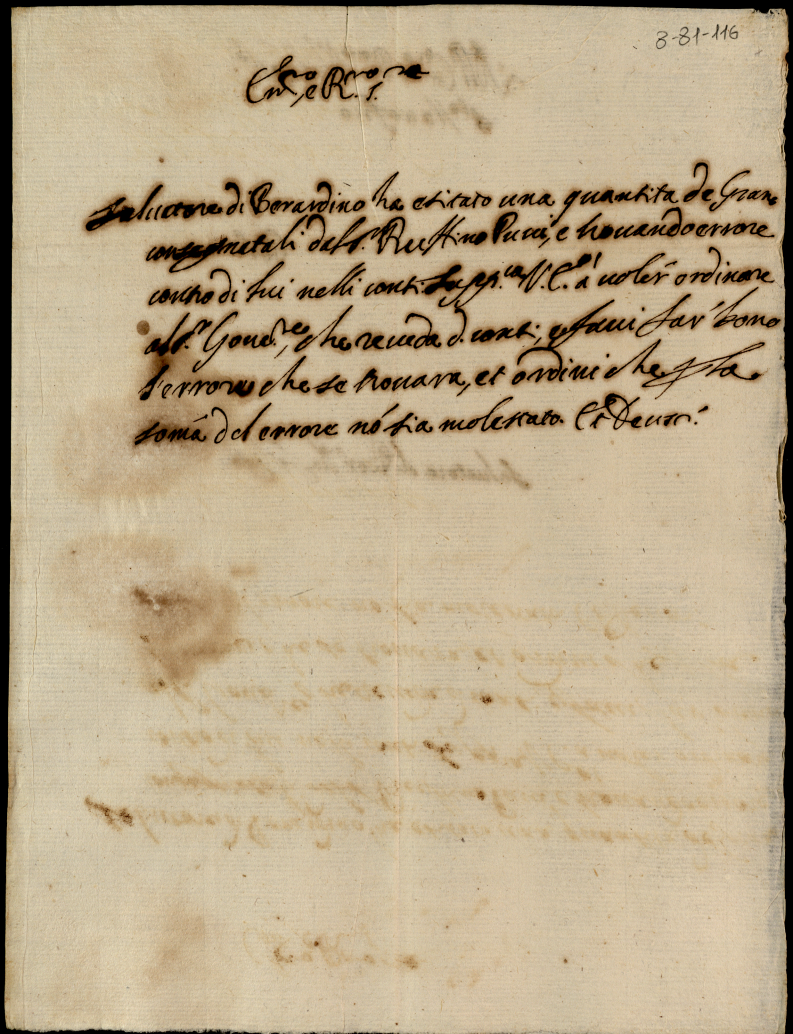 8-81-116
Em.o e R.mo S.re
Salvatore di Berardino ha esitato una quantita de Grano
consegnatali dal S.r Ruffino Pucci, e trovando errore
contro di lui nelli conti supp.ca V. E. à voler ordinare
al S.r Gover.re, che reveda d. conti, e facci far bono
l'errore che se trovara, et ordini che p la
somā del errore nō sia molestato. Et Deus.